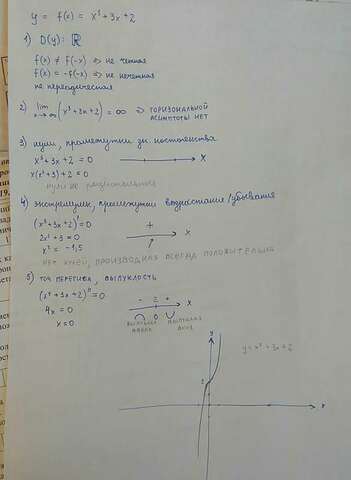 y = f(x) = x³+3x+2
1) D(y): ℝ
f(x) ≠ f(-x) => не четная
f(x) = -f(-x) => не нечетная
не периодическая
2) lim x→∞ (x³+3x+2) = ∞ => горизональной
асимптоты нет
3) нули, промежутки зн. постоянства
x³+3x+2 = 0
x(x²+3)+2 = 0
x
нули не рациональные
4) экстремумы, промежутки возрастания/убывания
(x³+3x+2)' = 0
2x²+3 = 0
x² = -1,5
+
x
нет нулей, производная всегда положительна
5) точ перегиба, выпуклость
(x³+3x+2)'' = 0
4x = 0
x = 0
- 2 +
0
x
выпуклая
выпуклая
вниз
y
y = x³+3x+2
x